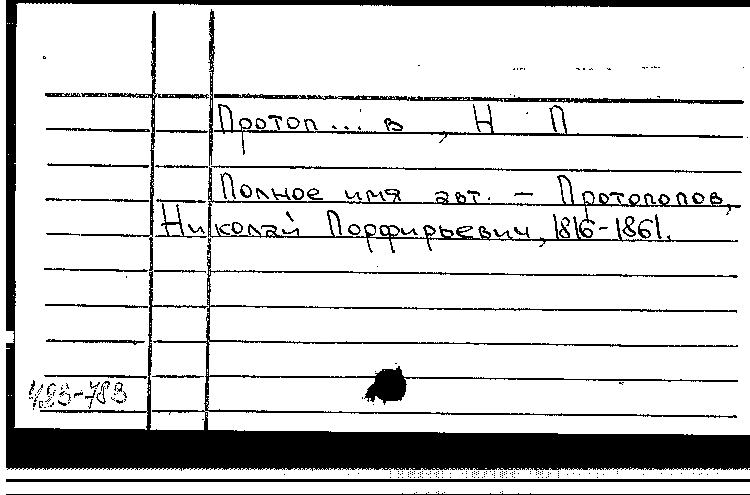 Протоп... в , Н П
Полное имя авт. - Протопопов,
Николай Порфирьевич, 1816-1861.
483-783